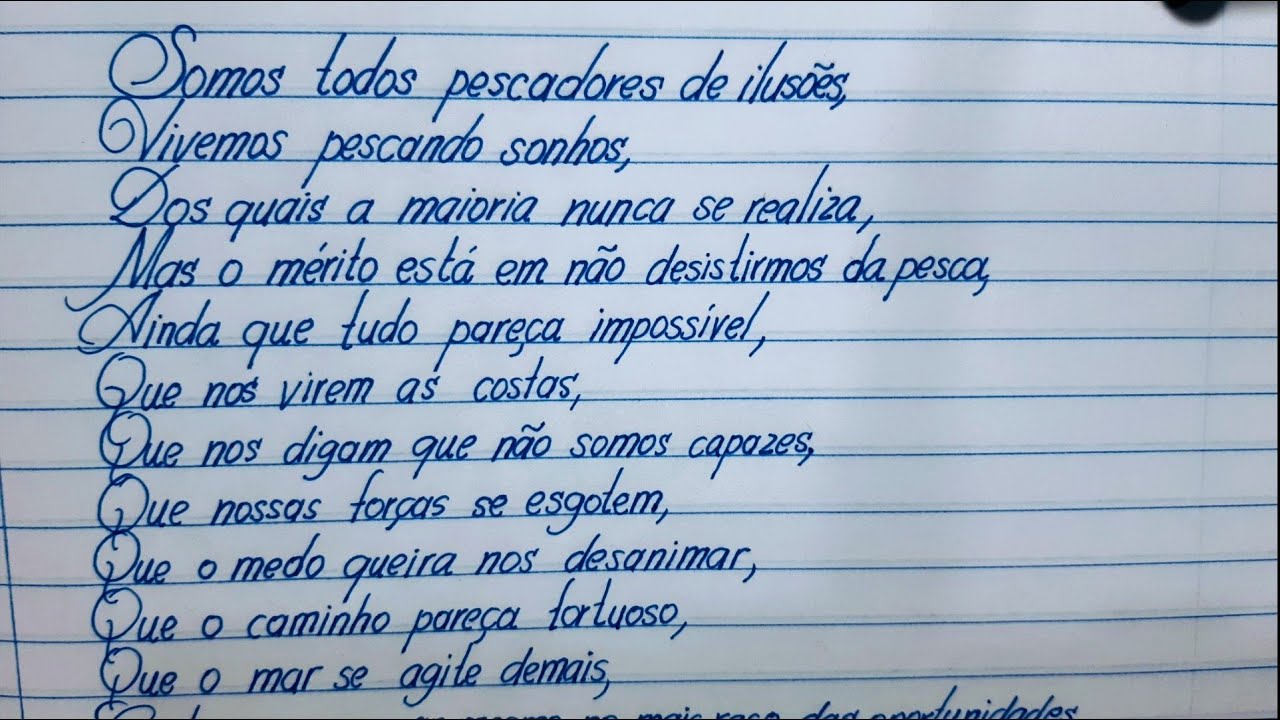 Somos todos pescadores de ilusões,
Vivemos pescando sonhos,
Dos quais a maioria nunca se realiza,
Mas o mérito está em não desistirmos da pesca,
Ainda que tudo pareça impossível,
Que nos virem as costas,
Que nos digam que não somos capazes,
Que nossas forças se esgotem,
Que o medo queira nos desanimar,
Que o caminho pareça tortuoso,
Que o mar se agite demais,
mesmo no mais raso das oportunidades